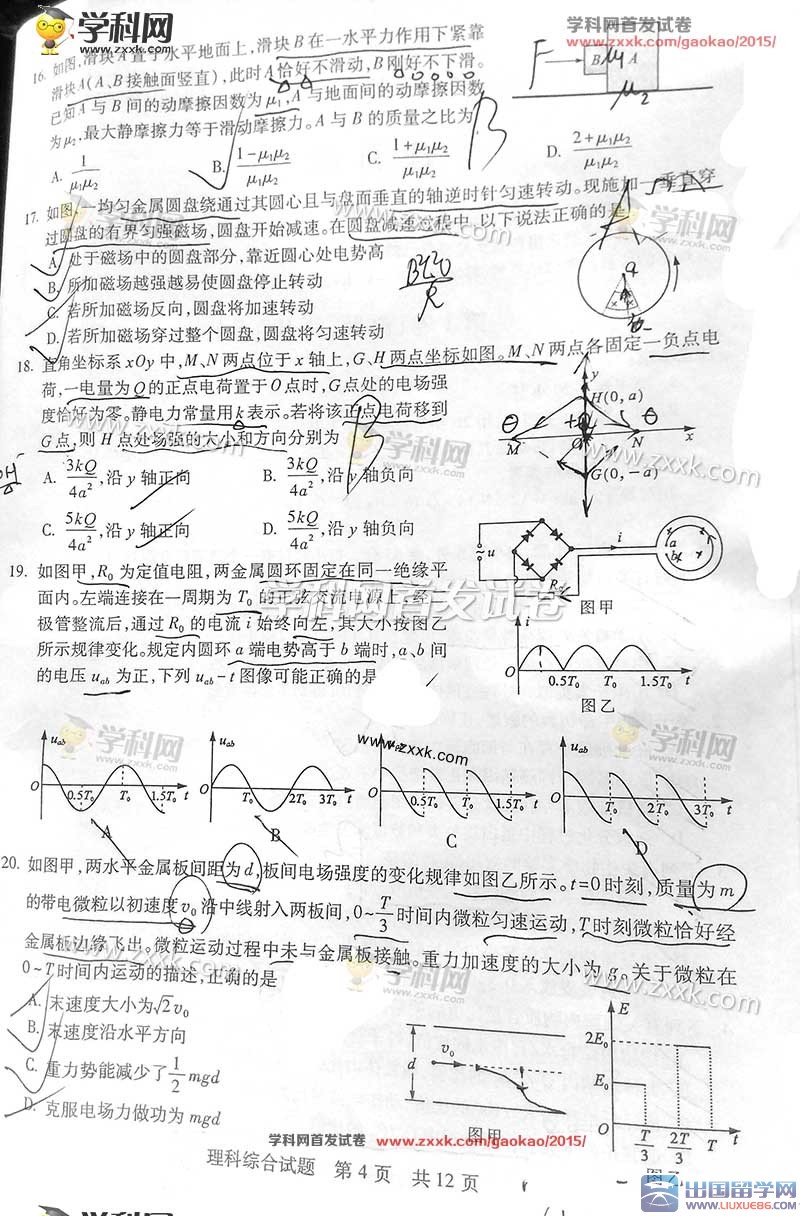 学科网
www.zxxk.com
学科网首发试卷
www.zxxk.com/gaokao/2015/
16. 如图,滑块A置于水平地面上,滑块B在一水平力作用下紧靠
滑块A(A、B接触面竖直),此时A恰好不滑动,B刚好不下滑。
已知A与B间的动摩擦因数为μ₁,A与地面间的动摩擦因数
为μ₂,最大静摩擦力等于滑动摩擦力。A与B的质量之比为
F B A
μ₁
μ₂
A. 1/μ₁μ₂ B. (1-μ₁μ₂)/μ₁μ₂ C. (1+μ₁μ₂)/μ₁μ₂ D. (2+μ₁μ₂)/μ₁μ₂
B
17. 如图,一均匀金属圆盘绕通过其圆心且与盘面垂直的轴逆时针匀速转动。现施加一垂直穿
过圆盘的有界匀强磁场,圆盘开始减速。在圆盘减速过程中,以下说法正确的是
学科网
www.zxxk.com
A. 处于磁场中的圆盘部分,靠近圆心处电势高
B. 所加磁场越强越易使圆盘停止转动
C. 若所加磁场反向,圆盘将加速转动
D. 若所加磁场穿过整个圆盘,圆盘将匀速转动
18. 直角坐标系xOy中,M、N两点位于x轴上,G、H两点坐标如图。M、N两点各固定一负点电
荷,一电量为Q的正点电荷置于O点时,G点处的电场强
度恰好为零。静电力常量用k表示。若将该正点电荷移到
G点,则H点处场强的大小和方向分别为
y
H(0,a)
M O N x
G(0,-a)
学科网
www.zxxk.com
A. 3kQ/4a²,沿y轴正向 B. 3kQ/4a²,沿y轴负向
C. 5kQ/4a²,沿y轴正向 D. 5kQ/4a²,沿y轴负向
19. 如图甲,R₀为定值电阻,两金属圆环固定在同一绝缘平
面内。左端连接在一周期为T₀的正弦交流电源上,经二
极管整流后,通过R₀的电流i始终向左,其大小按图乙
所示规律变化。规定内圆环a端电势高于b端时,a、b间
的电压uab为正,下列uab-t图像可能正确的是
学科网首发试卷
~u R₀ i a b
图甲
i
O 0.5T₀ T₀ 1.5T₀ t
图乙
学科网
www.zxxk.com
www.zxxk.com
学科网
www.zxxk.com
uab uab uab uab
O 0.5T₀ T₀ 1.5T₀ t O T₀ 2T₀ 3T₀ t O 0.5T₀ T₀ 1.5T₀ t O T₀ 2T₀ 3T₀ t
A B C D
20. 如图甲,两水平金属板间距为d,板间电场强度的变化规律如图乙所示。t=0时刻,质量为m
的带电微粒以初速度v₀沿中线射入两板间,0~T/3时间内微粒匀速运动,T时刻微粒恰好经
金属板边缘飞出。微粒运动过程中未与金属板接触。重力加速度的大小为g。关于微粒在
0~T时间内运动的描述,正确的是
学科网
www.zxxk.com
A. 末速度大小为√2v₀
B. 末速度沿水平方向
C. 重力势能减少了1/2 mgd
D. 克服电场力做功为mgd
d v₀
图甲
E
2E₀
E₀
O T/3 2T/3 T t
图乙
学科网首发试卷 www.zxxk.com/gaokao/2015/
理科综合试题 第4页 共12页
出国留学网
WWW.LIUXUE86.COM
学科网